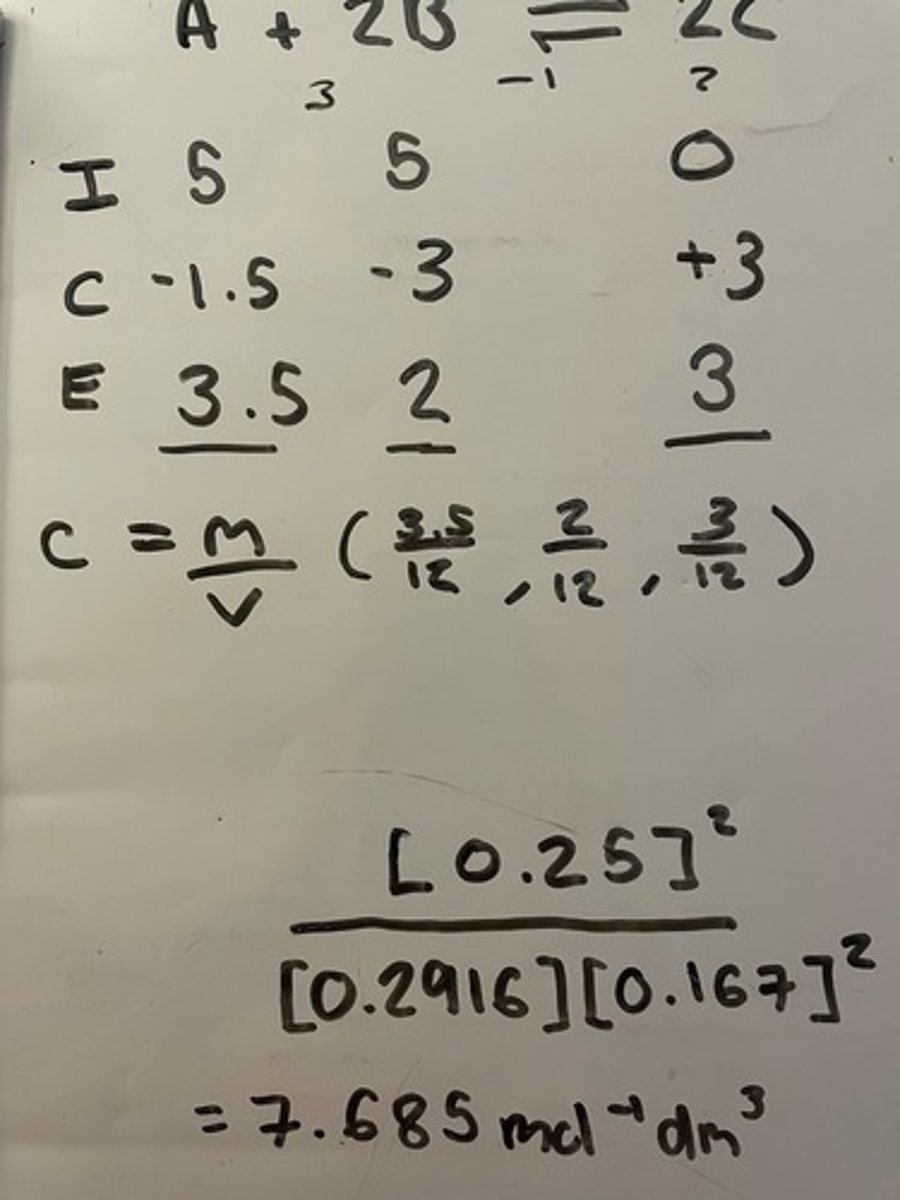 A + 2B ⇌ 2C
3 -1 2
I 5 5 0
C -1.5 -3 +3
E 3.5 2 3
C = m/v (3.5/12, 2/12, 3/12)
[0.25]²
[0.2916][0.167]²
= 7.685 mol⁻¹ dm³